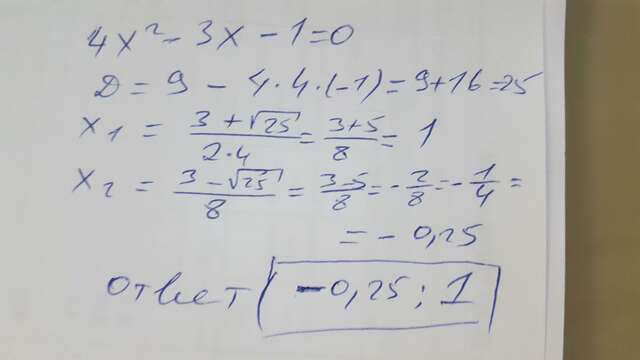 4x² - 3x - 1 = 0
D = 9 - 4·4·(-1) = 9 + 16 = 25
x₁ = (3 + √25)/(2·4) = (3+5)/8 = 1
x₂ = (3 - √25)/8 = (3-5)/8 = -2/8 = -1/4 =
= - 0,25
Ответ -0,25; 1